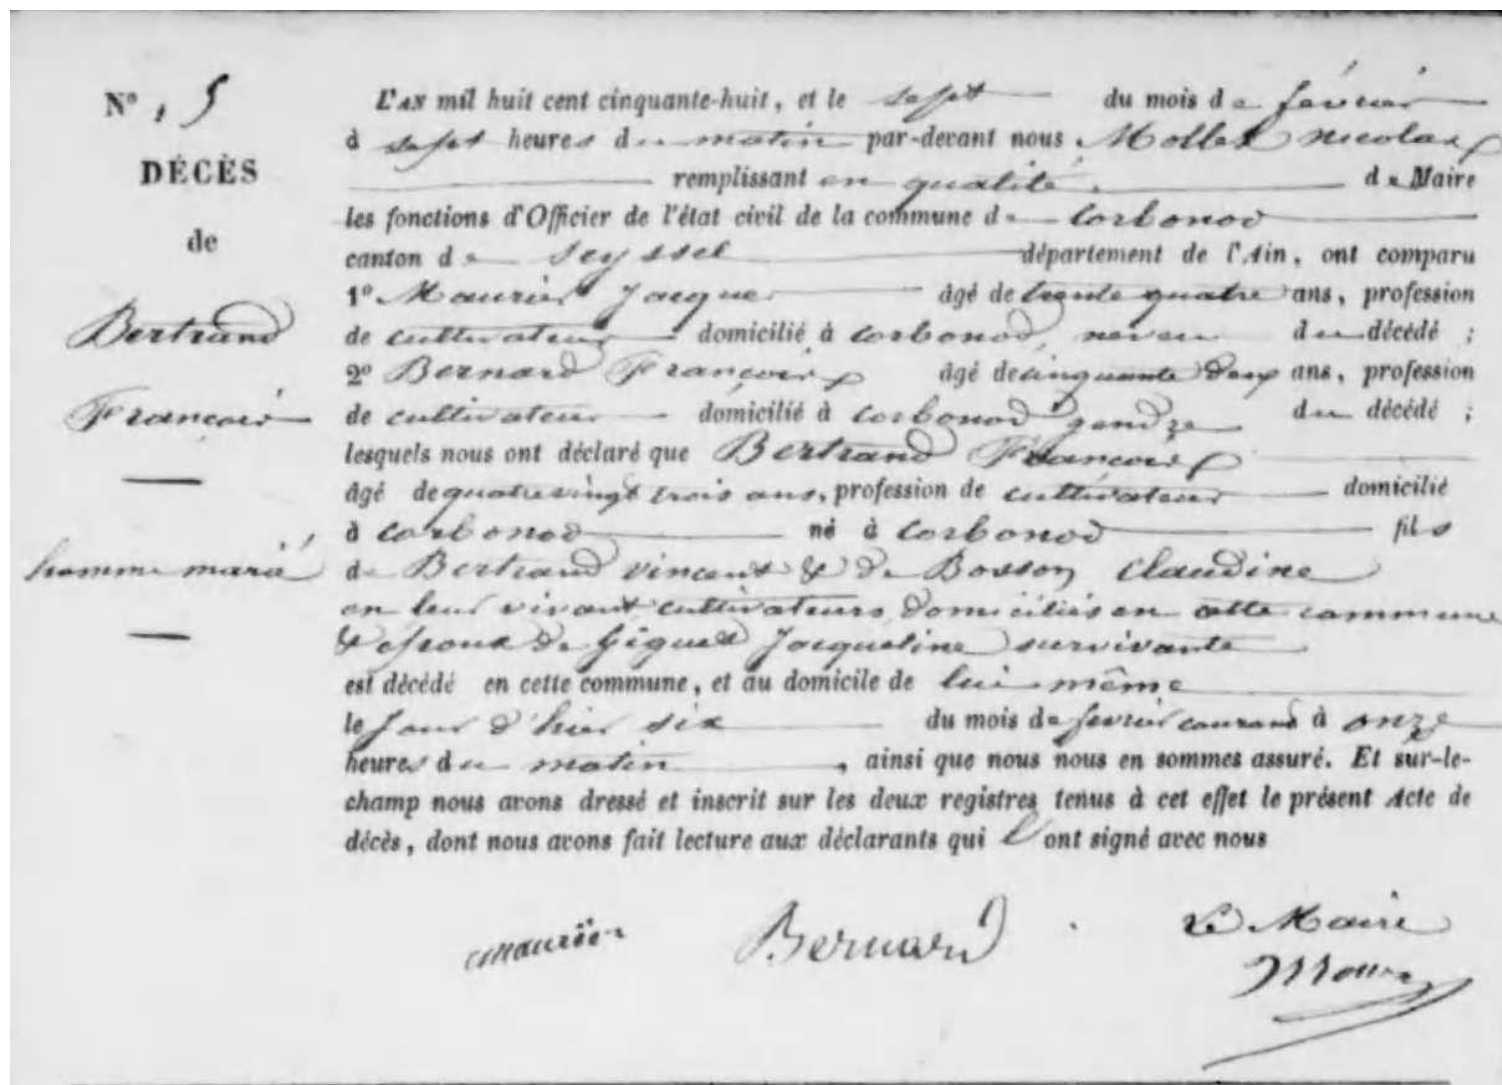 N° 5
DÉCÈS
de
Bertrand
François
homme marié
L'AN mil huit cent cinquante-huit, et le sept du mois de février
à sept heures du matin par-devant nous Mollex Nicolas
remplissant en qualité de Maire
les fonctions d'Officier de l'état civil de la commune de Corbonod
canton de Seyssel département de l'Ain, ont comparu
1° Maurier Jacques âgé de trente quatre ans, profession
de cultivateur domicilié à Corbonod, neveu du décédé ;
2° Bernard François âgé de cinquante deux ans, profession
de cultivateur domicilié à Corbonod gendre du décédé ;
lesquels nous ont déclaré que Bertrand François
âgé de quatre vingt trois ans, profession de cultivateur domicilié
à Corbonod né à Corbonod fils
de Bertrand Vincent & de Bosson Claudine
en leur vivant cultivateurs domiciliés en cette commune
& époux de Giguet Jacqueline survivante
est décédé en cette commune, et au domicile de lui même
le jour d'hier six du mois de février courant à onze
heures du matin, ainsi que nous nous en sommes assuré. Et sur-le-
champ nous avons dressé et inscrit sur les deux registres tenus à cet effet le présent Acte de
décès, dont nous avons fait lecture aux déclarants qui l'ont signé avec nous
Maurier Bernard Le Maire